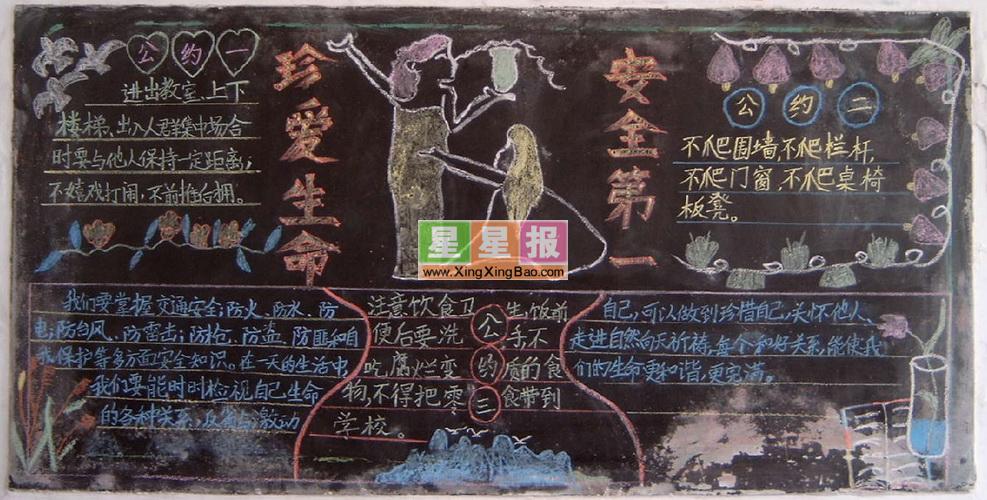 公约一
进出教室、上下
楼梯、出入人群集中场合
时要与他人保持一定距离；
不嬉戏打闹，不前推后拥。
珍爱生命
安全第一
公约二
不爬围墙，不爬栏杆，
不爬门窗，不爬桌椅
板凳。
星星报
www.XingXingBao.com
我们要掌握交通安全；防火、防水、防
电；防台风、防雷击；防抢、防盗、防匪和自
我保护等多方面安全知识。在一天的生活中
我们要能时时检视自己生命
的各种关系，
公约三
注意饮食卫生，饭前
便后要洗手，不
吃腐烂变质的食
物，不得把零食带到
学校。
自己，可以做到珍惜自己，关怀他人、
走进自然向天祈祷，每个和好关系，能使我
们的生命更和谐，更完满。